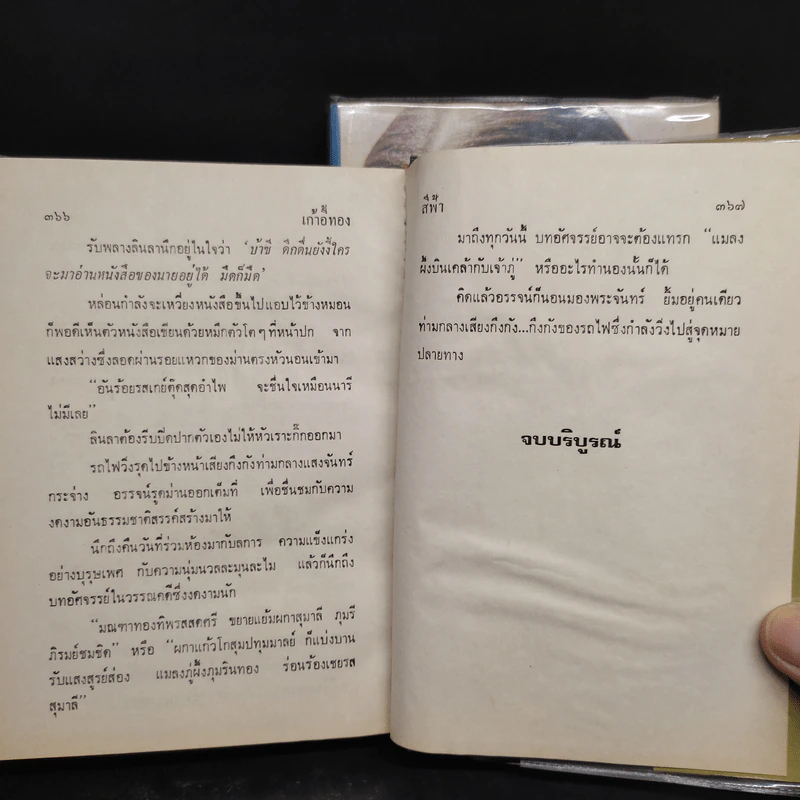 ๓๖๖ เก้าอี้ทอง
รับพลางลินลานึกอยู่ในใจว่า ‘บ้าซี ดึกดื่นยังงี้ใคร
จะมาอ่านหนังสือของนายอยู่ได้ มืดก็มืด’
หล่อนกำลังจะเหวี่ยงหนังสือขึ้นไปแอบไว้ข้างหมอน
ก็พอดีเห็นตัวหนังสือเขียนด้วยหมึกตัวโตๆ ที่หน้าปก จาก
แสงสว่างซึ่งลอดผ่านรอยแหวกของม่านตรงหัวนอนเข้ามา
“อันร้อยรสเกย์ตุ๊ดสุดอำไพ จะชื่นใจเหมือนนารี
ไม่มีเลย”
ลินลาต้องรีบปิดปากตัวเองไม่ให้หัวเราะกิ๊กออกมา
รถไฟวิ่งรุดไปข้างหน้าเสียงกึงกังท่ามกลางแสงจันทร์
กระจ่าง อรรจน์รูดม่านออกเต็มที่ เพื่อชื่นชมกับความ
งดงามอันธรรมชาติสรรค์สร้างมาให้
นึกถึงคืนวันที่ร่วมห้องมากับลการ ความแข็งแกร่ง
อย่างบุรุษเพศ กับความนุ่มนวลละมุนละไม แล้วก็นึกถึง
บทอัศจรรย์ในวรรณคดีซึ่งงดงามนัก
“มณฑาทองทิพรสสดศรี ขยายแย้มผกาสุมาลี ภุมรี
ภิรมย์ชมชิด” หรือ “ผกาแก้วโกสุมปทุมมาลย์ ก็แบ่งบาน
รับแสงสูรย์ส่อง แมลงภู่ผึ้งภุมรินทอง ร่อนร้องเชยรส
สุมาลี”
สีฟ้า ๓๖๗
มาถึงทุกวันนี้ บทอัศจรรย์อาจจะต้องแทรก “แมลง
ผึ้งบินเคล้ากับเจ้าภู่” หรืออะไรทำนองนั้นก็ได้
คิดแล้วอรรจน์ก็นอนมองพระจันทร์ ยิ้มอยู่คนเดียว
ท่ามกลางเสียงกึงกัง...กึงกังของรถไฟซึ่งกำลังวิ่งไปสู่จุดหมาย
ปลายทาง
จบบริบูรณ์